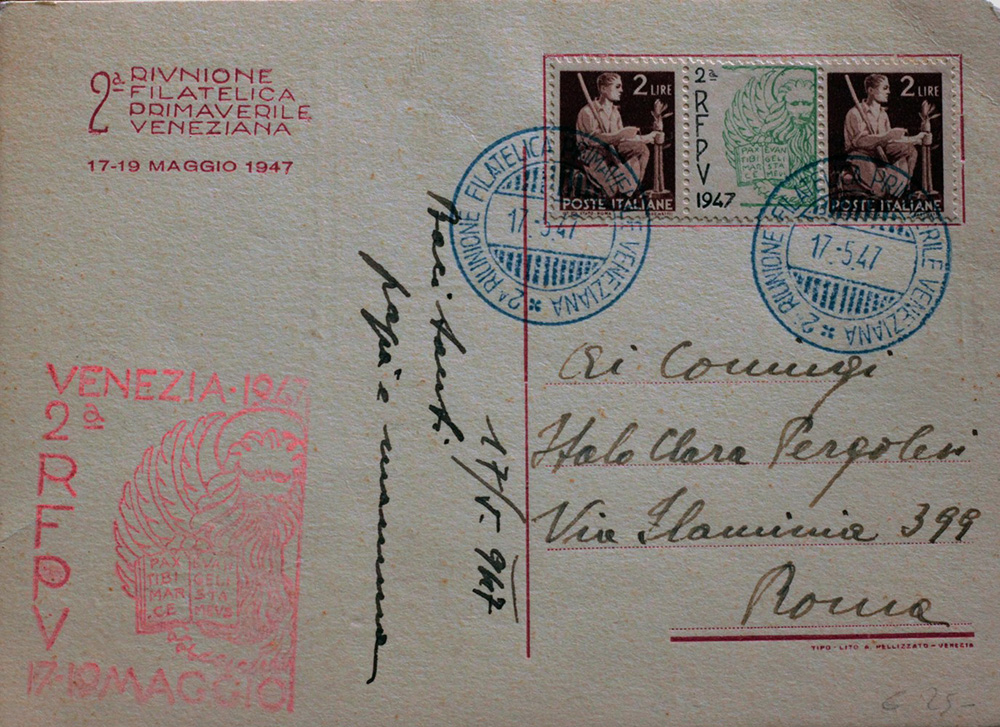 2ª RIVNIONE
FILATELICA
PRIMAVERILE
VENEZIANA
17-19 MAGGIO 1947
2 LIRE
POSTE ITALIANE
2ª
R
F
P
V
1947
PAX EVAN
TIBI GELI
MAR STA
CE MEVS
2 LIRE
POSTE ITALIANE
2ª RIUNIONE FILATELICA PRIMAVERILE VENEZIANA
17.-5.47
2ª RIUNIONE FILATELICA PRIMAVERILE VENEZIANA
17.-5.47
Baci tanti.
papà e mamma
17/V-947
Ai Coniugi
Italo Clara Pergolesi
Via Flaminia 399
Roma
TIPO-LITO A. PELLIZZATO - VENEZIA
VENEZIA-1947
2ª
R
F
P
V
PAX EVAN
TIBI GELI
MAR STA
CE MEVS
17-19 MAGGIO
€ 25-